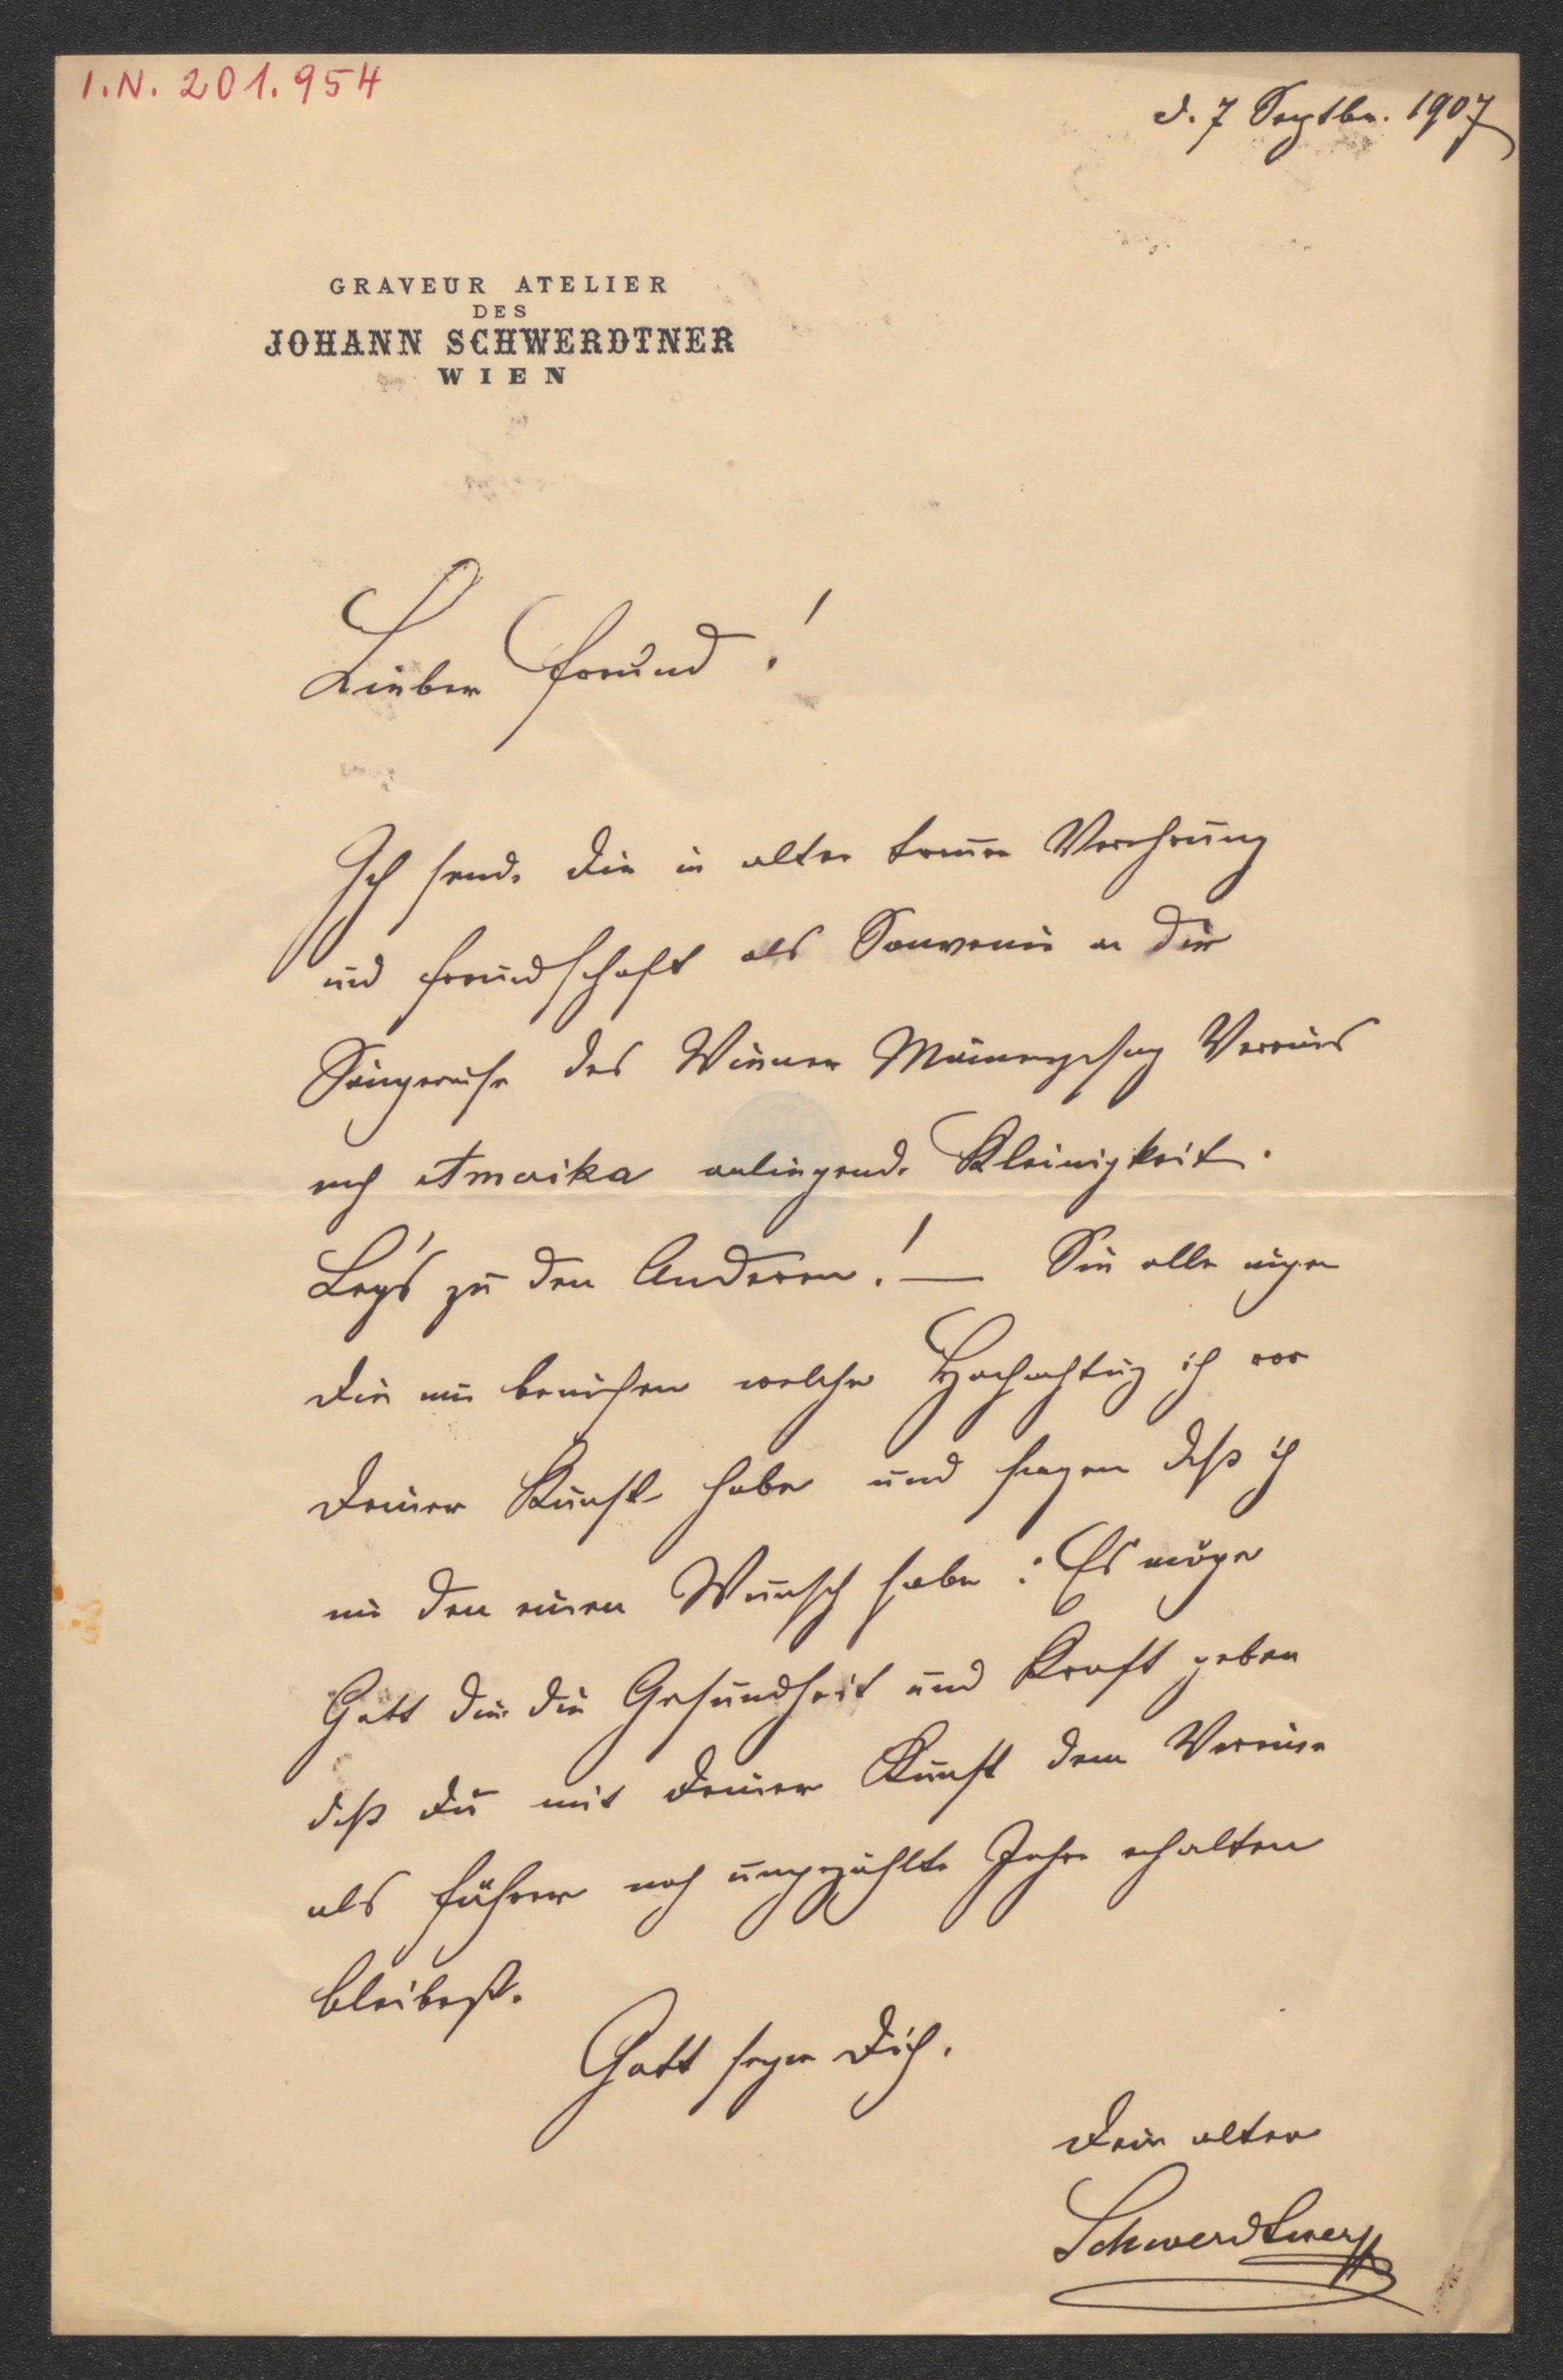 I.N. 201.954
d. 7 Septbr. 1907
GRAVEUR ATELIER
DES
JOHANN SCHWERDTNER
WIEN
Lieber Freund!
Ich sende Dir in alter treuer Verehrung
und Freundschaft als Souvenir an die
Sängerreise des Wiener Männergesang Vereins
nach Amerika anliegende Kleinigkeit.
Leg's zu den Anderen! — Sie alle mögen
Dir nur beweisen welche Hochachtung ich vor
Deiner Kunst habe und sagen daß ich
nur den einen Wunsch habe: Es möge
Gott Dir die Gesundheit und Kraft geben
daß Du mit Deiner Kunst dem Vereine
als Führer noch ungezählte Jahre erhalten
bleibest.
Gott segne Dich.
Dein alter
Schwerdtner